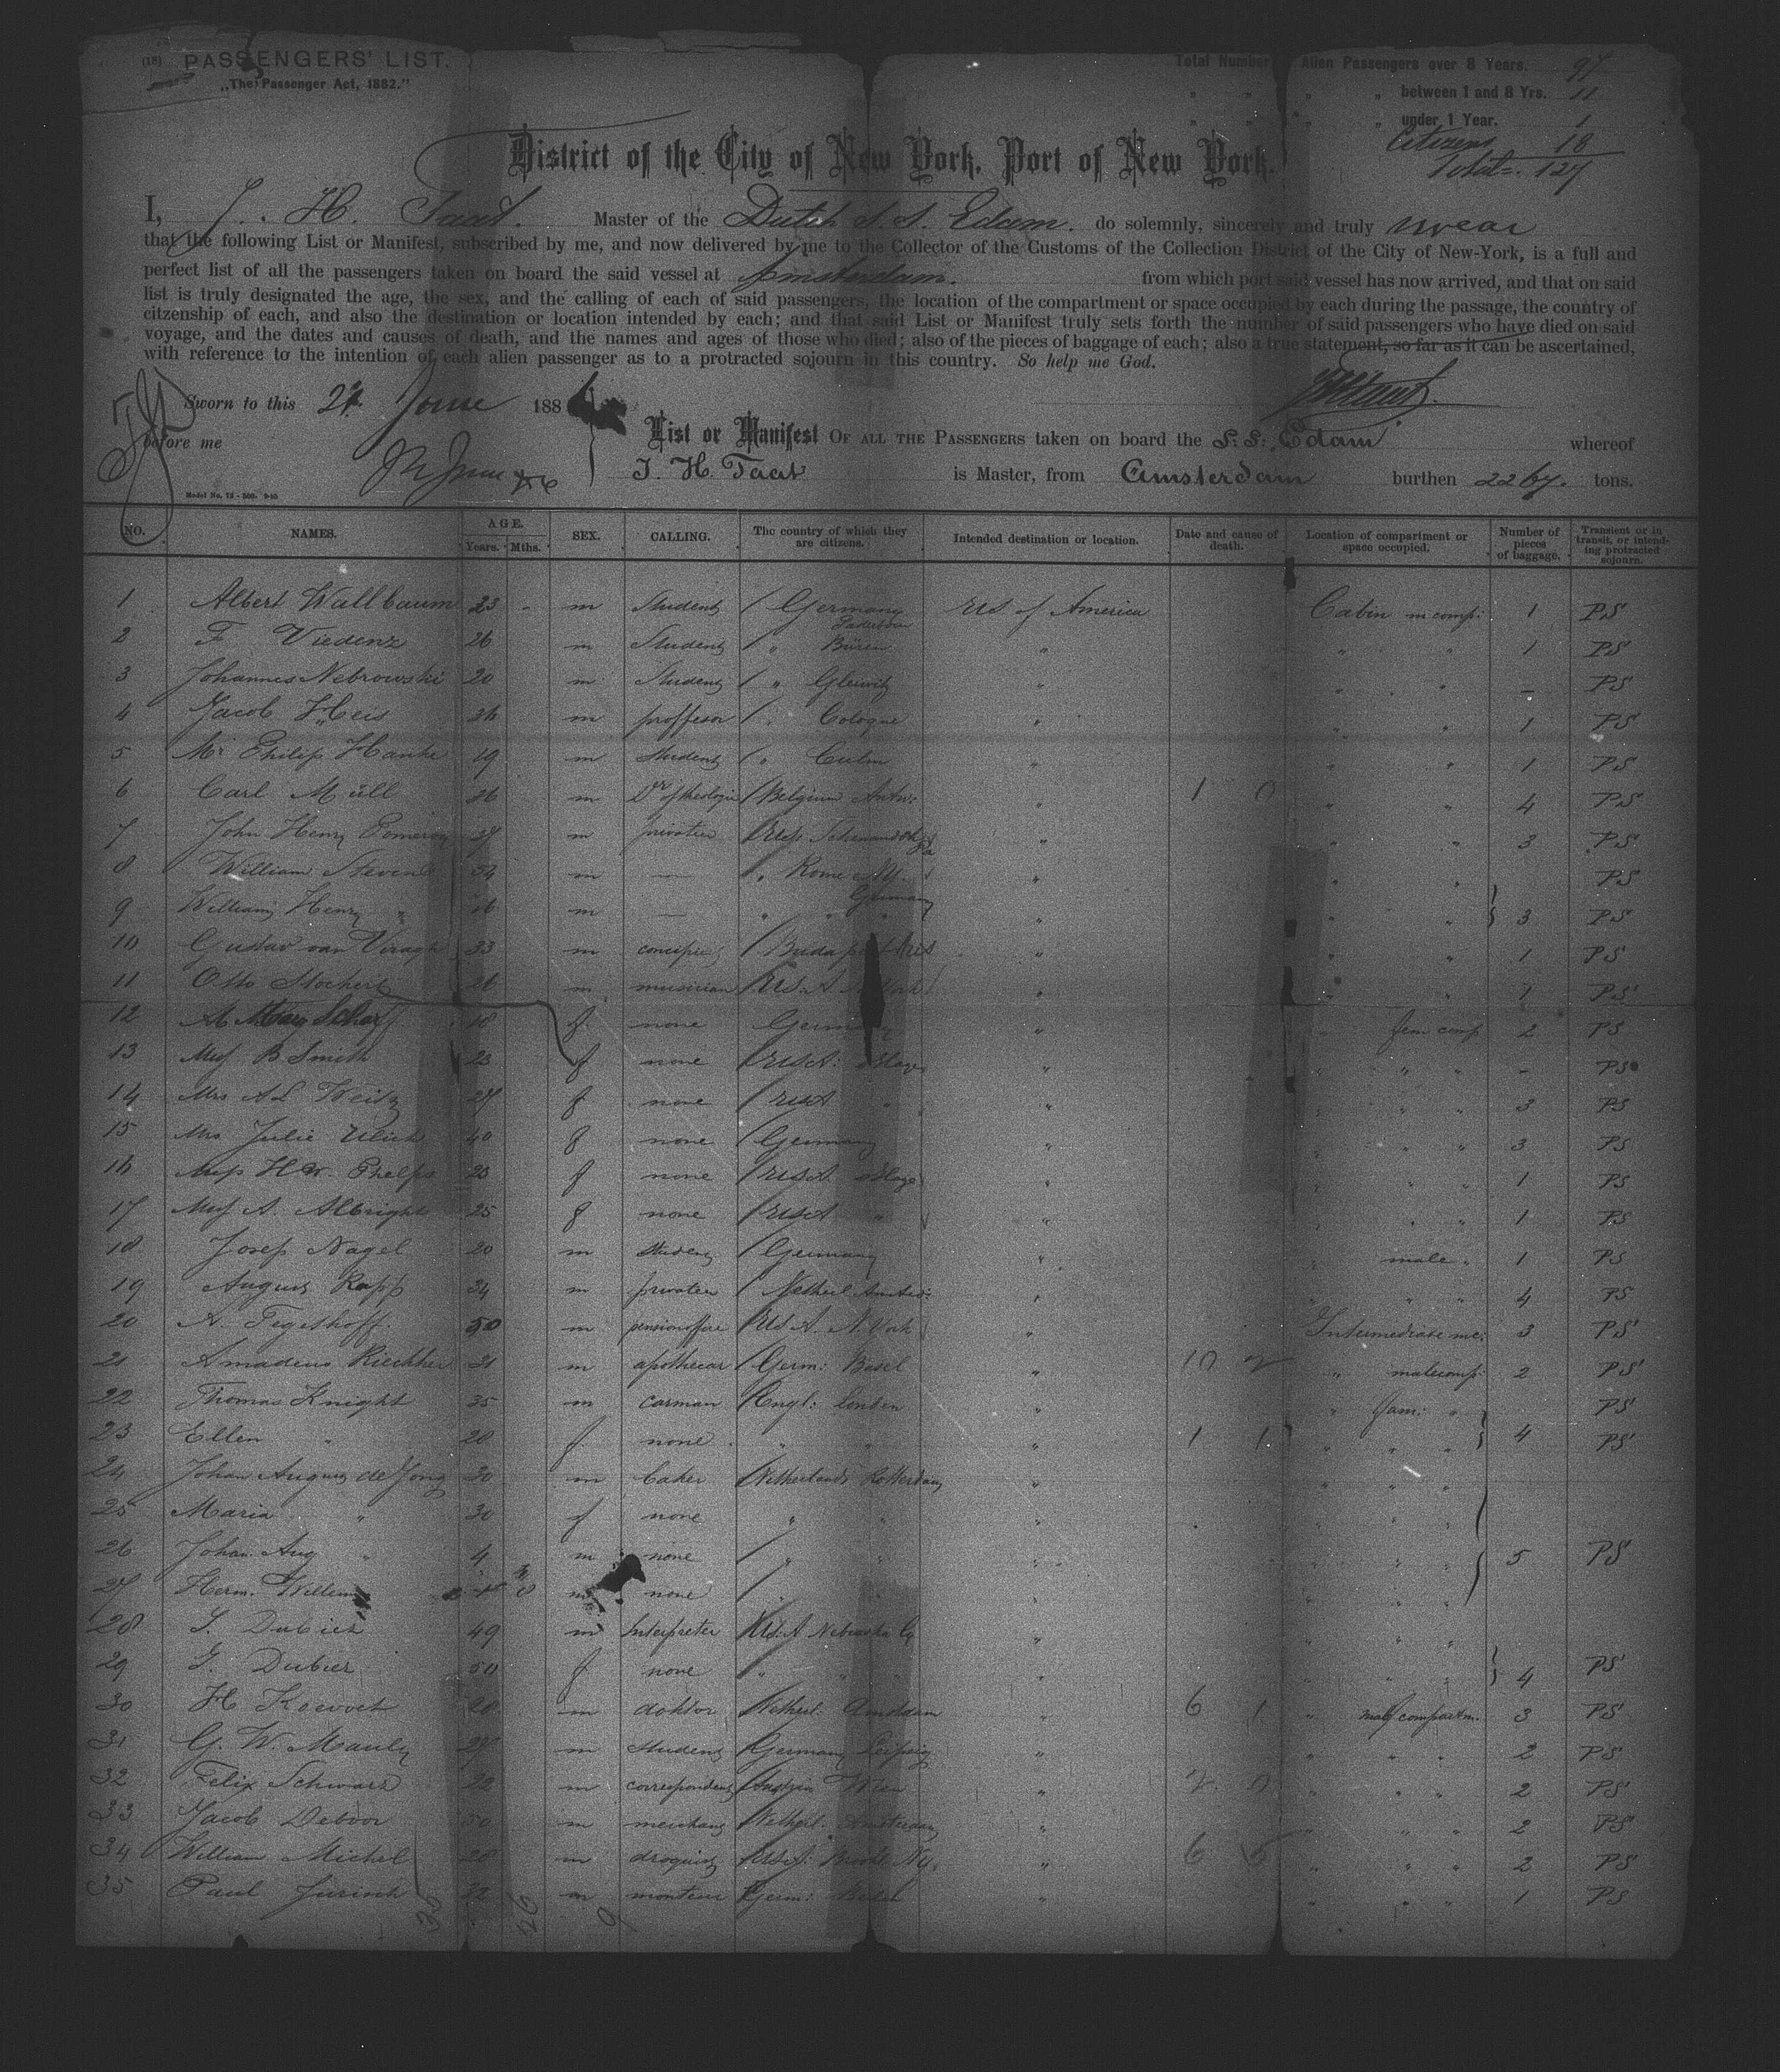 (18) PASSENGERS' LIST.
„The Passenger Act, 1882."
Total Number Alien Passengers over 8 Years. 97
" " " „ between 1 and 8 Yrs. 11
" " " „ under 1 Year. 1
Citizens 18
Total 127
District of the City of New York, Port of New York.
I, J. H. Taat. Master of the Dutch S. S. Edam. do solemnly, sincerely and truly swear
that the following List or Manifest, subscribed by me, and now delivered by me to the Collector of the Customs of the Collection District of the City of New-York, is a full and
perfect list of all the passengers taken on board the said vessel at Amsterdam. from which port said vessel has now arrived, and that on said
list is truly designated the age, the sex, and the calling of each of said passengers, the location of the compartment or space occupied by each during the passage, the country of
citzenship of each, and also the destination or location intended by each; and that said List or Manifest truly sets forth the number of said passengers who have died on said
voyage, and the dates and causes of death, and the names and ages of those who died; also of the pieces of baggage of each; also a true statement, so far as it can be ascertained,
with reference to the intention of each alien passenger as to a protracted sojourn in this country. So help me God.
Sworn to this June 188
before me
List or Manifest OF ALL THE PASSENGERS taken on board the S. S. Edam whereof
J. H. Taat is Master, from Amsterdam burthen 2267. tons.
NO. NAMES. AGE. Years. Mths. SEX. CALLING. The country of which they are citizens. Intended destination or location. Date and cause of death. Location of compartment or space occupied. Number of pieces of baggage. Transient or in transit, or intending protracted sojourn.
1 Albert Wallbaum 23 m Student Germany US of America Cabin m comp: 1 PS
2 F Viedenz 26 m Student " Büren " " " 1 PS
3 Johannes Nebrowski 20 m Student " Gleiwitz " " " – PS
4 Jacob Heis m proffesor " Cologne " " " 1 PS
5 Mr Philip Hanke 19 m Student " Culm " " " 1 PS
6 Carl Müll 26 m Dr of theologie Belgium Antw: " 1 0 " " 4 PS
7 John Henry 37 m privatier " " " 3 PS
8 William Stevens 54 m — " Rome " " " PS
9 William Henry " 16 m — " " Germany " " " 3 PS
10 Gustav van Viragh 33 m Buda " " 1 PS
11 Otto Stockert 26 m musician U.S.A. N York " " " 1 PS
12 A Mary Scharf 18 f. none Germany " " fem comp 2 PS
13 Miss B Smith 23 f none USA: " " " – PS
14 Mrs A L 27 f none USA " " " " 3 PS
15 Mrs Julie Ulich 40 f none Germany " " " 3 PS
16 Miss H W. Phelps 23 f none USA " " " 1 PS
17 Miss A. Albright 25 f none USA " " " " 1 PS
18 Josef Nagel 20 m student Germany " " male " 1 PS
19 August Rapp 34 m privatier Netherl Amsterd: " " " " 4 PS
20 A. Tegethoff. 50 m U.S.A. N. York " Intermediate 3 PS
21 Amadeus 21 m apothecar Germ: Basel " 10 2 " malecomp: 2 PS
22 Thomas Knight 35 m carman Engl: London " " fam: " PS
23 Ellen " 28 f. none " " " 1 1 " " " 4 PS
24 Johan August de Jong 30 m baker Netherlands Rotterdam " " " "
25 Maria " 30 f none " " " " " "
26 Johan Aug " 4 m none " " " " " " 5 PS
27 Herm. Willem m none " " " "
28 Dubier 49 m Interpreter U.S.A Nebraska " " " "
29 Dubier 50 f. none " " " " " 4 PS
30 H 28 m doktor Netherl. Amstdam " 6 1 " male compartm. 3 PS
31 G. W. 27 m student Germany Leipzig " " " " 2 PS
32 Felix Schwarz 22 m correspondent Austria Wien " 2 0 " " " 2 PS
33 Jacob Deboor 50 m merchant Netherl. Amsterdam " " " " 2 PS
34 William Michel 28 m droguist U.S.A: Brookl. N.Y. " 6 5 " " " 2 PS
35 Paul Jurisch 32 m monteur Germ: " " " " 1 PS